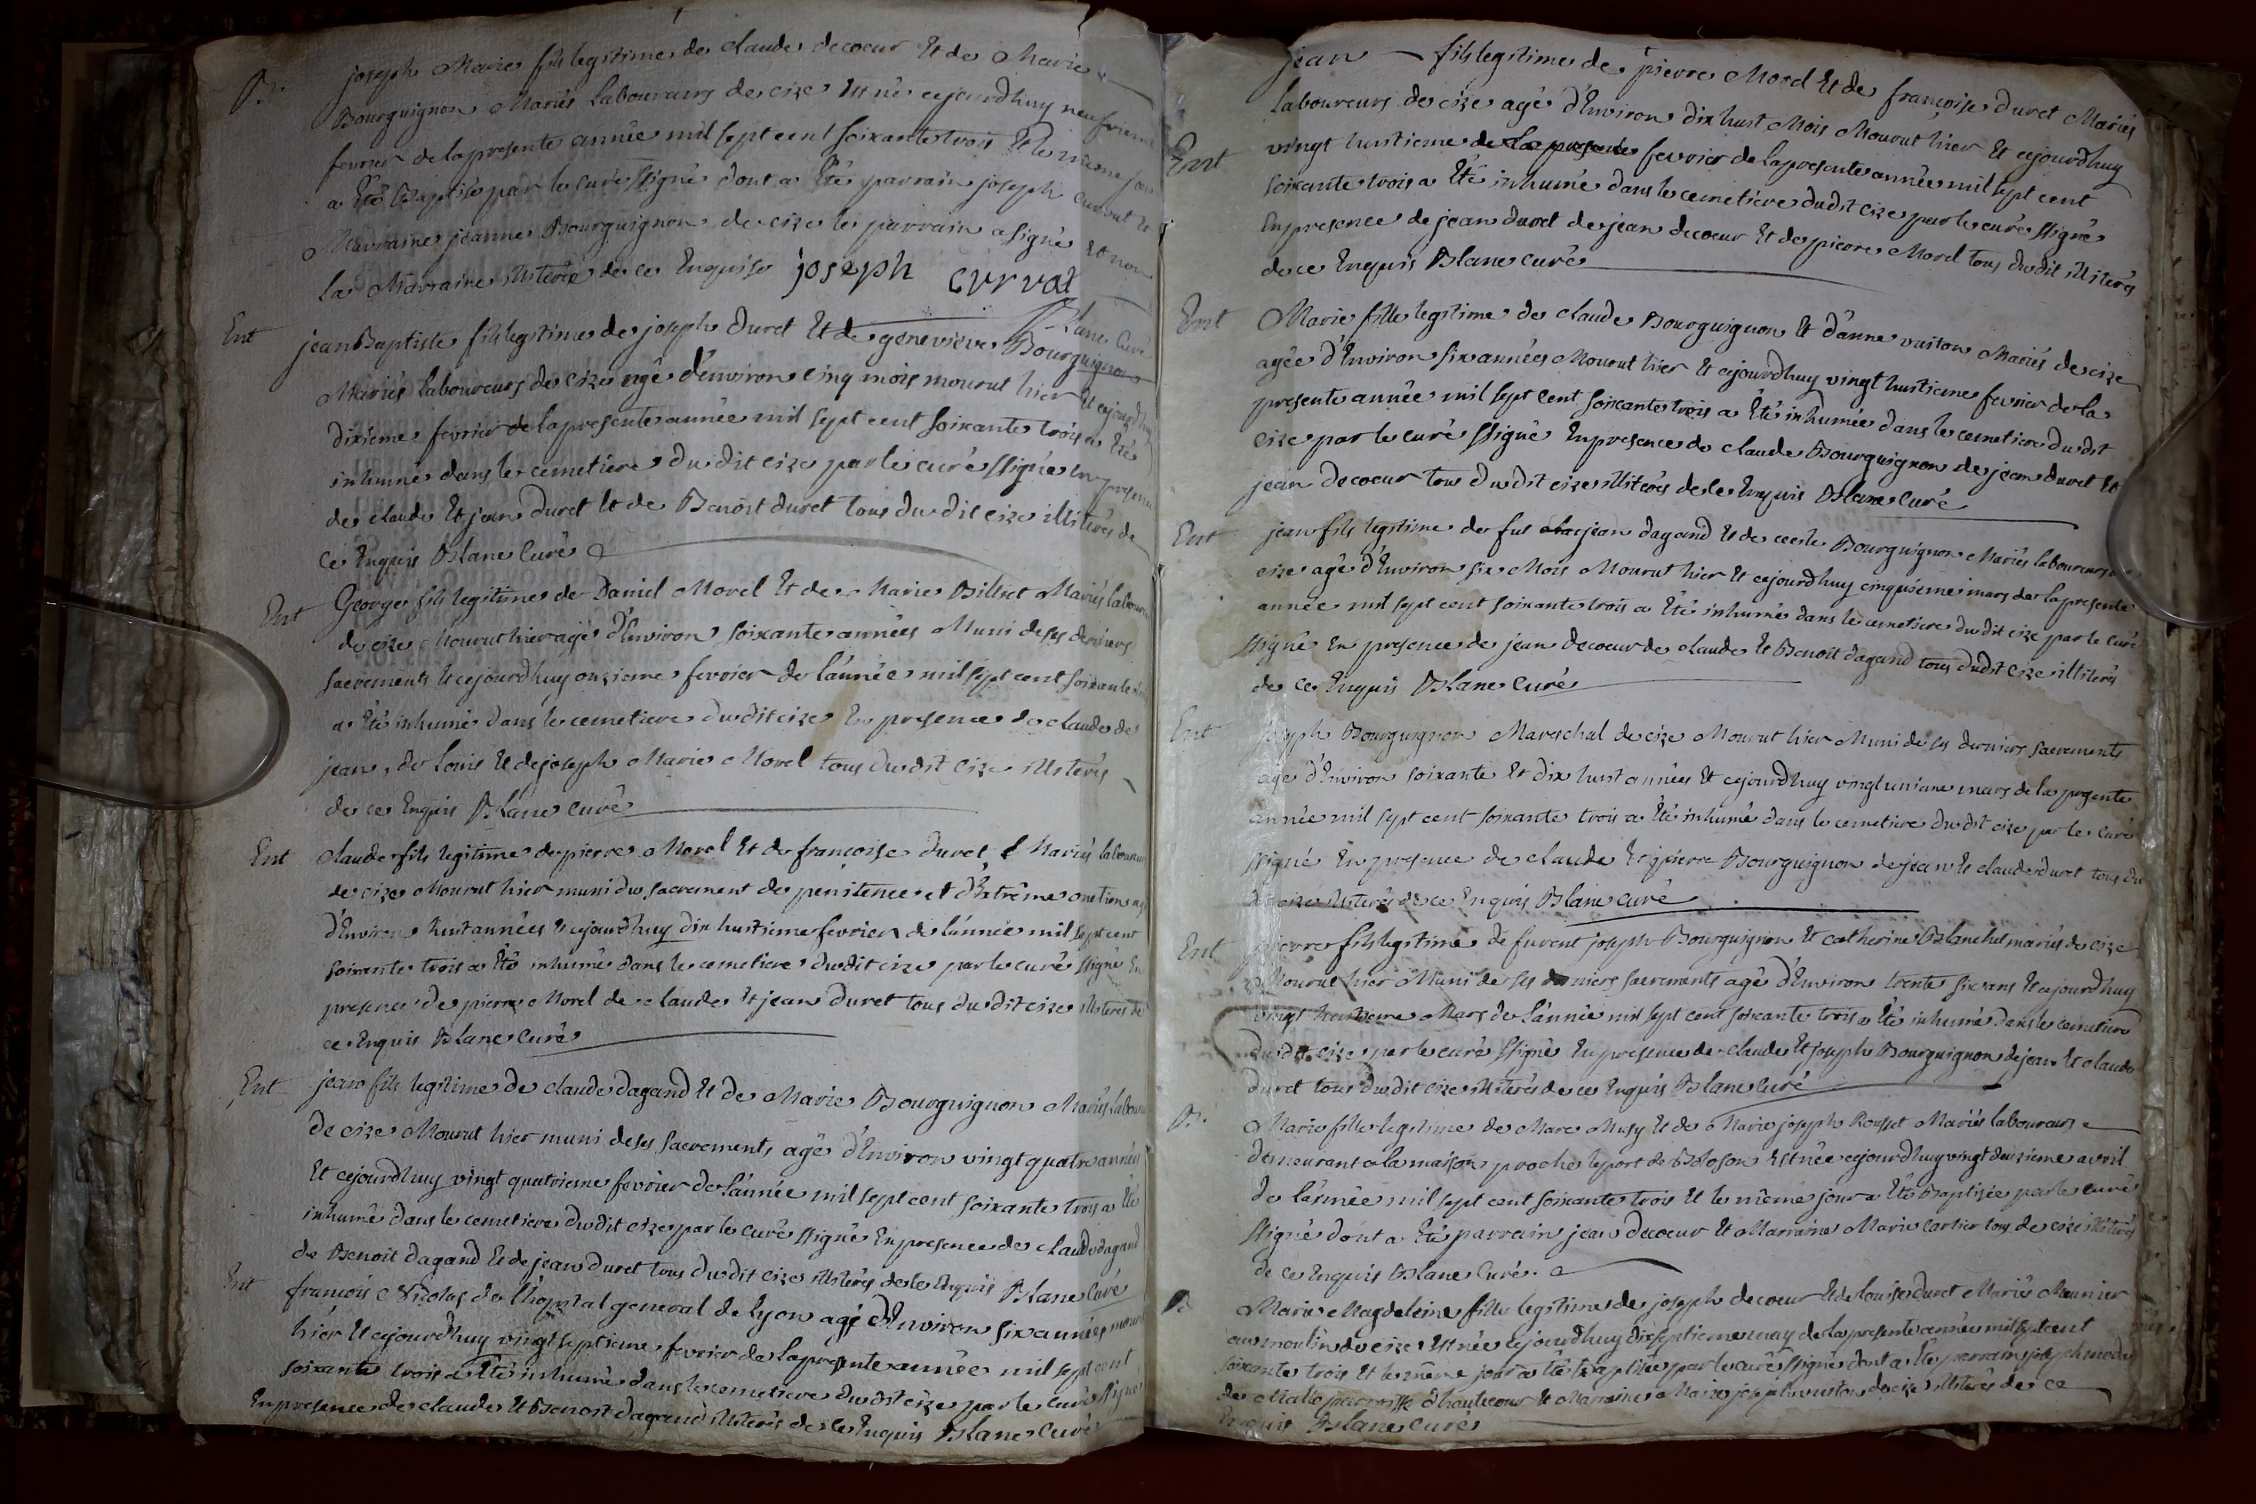 B.
joseph Marie fils legitime de claude decoeur Et de Marie
Bourguignon Mariés Laboureurs de cize Est né cejourdhuy neufvieme
fevrier de la presente année mil sept cent soixante trois Et le meme jour
a Eté Baptisé par le curé ssigné dont a Eté parrain joseph curvat Et
Marraine jeanne Bourguignon de cize le parrain a signé Et non
la Marraine illiterée de ce Enquise joseph cvrvat
Blanc Curé
Ent
jean Baptiste fils legitime de joseph Duret Et de genevieve Bourguignon
Mariés laboureurs de cize agé d'environ cinq mois mourut hier Et cejourdhuy
dixieme fevrier de la presente année mil sept cent soixante trois a Eté
inhumé dans le cemetiere du dit cize par le curé ssigné En presence
de claude Et jean Duret Et de Benoit duret tous du dit cize illiterés de
ce Enquis Blanc Curé
Ent
George fils legitime de Daniel Morel Et de Marie Billiet Mariés laboureurs
de cize Mourut hier agé d'Environ soixante années Muni de ses derniers
sacrements Et cejourdhuy onzieme fevrier de l'année mil sept cent soixante
a Eté inhumé dans le cemetiere du dit cize En presence de claude de
jean, de Louis Et de joseph Marie Morel tous du dit cize illiterés
de ce Enquis Blanc curé
Ent
claude fils legitime de pierre Morel Et de francoise duret Mariés laboureurs
de cize Mourut hier muni du sacrement de penitence et d'Extrême onction agé
d'Environ huit années Et cejourdhuy dix huitieme fevrier de l'année mil sept cent
soixante trois a Eté inhumé dans le cemetiere du dit cize par le curé ssigné En
presence de pierre Morel de claude Et jean duret tous du dit cize illiterés de
ce Enquis Blanc Curé
Ent
jean fils legitime de claude dagand Et de Marie Bourguignon Mariés Laboureurs
de cize Mourut hier muni de ses sacrements agé d'Environ vingt quatre années
Et cejourdhuy vingt quatrieme fevrier de l'année mil sept cent soixante trois a Eté
inhumé dans le cemetiere du dit cize par le curé ssigné En presence de claude dagand
de Benoit dagand Et de jean Duret tous du dit cize illiterés de ce Enquis Blanc Curé
Ent
francois Nicolas de l'hopital general de Lyon agé d'Environ six années mourut
hier Et cejourdhuy vingt septieme fevrier de la presente année mil sept cent
soixante trois a Eté inhumé dans le cemetiere du dit cize par le curé ssigné
En presence de claude Et Benoit dagand illiterés de ce Enquis Blanc Curé
jean fils legitime de pierre Morel Et de françoise duret Mariés
Laboureurs de cize agé d'Environ dix huit Mois Mourut hier Et cejourdhuy
Ent
vingt huitieme de la presente fevrier de la presente année mil sept cent
soixante trois a Eté inhumé dans le cemetiere du dit cize par le curé ssigné
En presence de jean duret de jean decoeur Et de pierre Morel tous du dit illiterés
de ce Enquis Blanc curé
Ent
Marie fille legitime de claude Bourguignon Et d'anne vuiton Mariés de cize
agée d'Environ six années Mourut hier Et cejourdhuy vingt huitieme fevrier de la
presente année mil sept cent soixante trois a Eté inhumée dans le cemetiere du dit
cize par le curé ssigné En presence de claude Bourguignon de jean duret Et
jean decoeur tous du dit cize illiterés de ce Enquis Blanc Curé
Ent
jean fils legitime de fut jean dagand Et de Bourguignon Mariés laboureurs
cize agé d'Environ six Mois Mourut hier Et cejourdhuy cinquieme mars de la presente
année mil sept cent soixante trois a Eté inhumé dans le cemetiere du dit cize par le curé
ssigné En presence de jean decoeur de claude Et Benoit dagand tous du dit cize illiterés
de ce Enquis Blanc Curé
Ent
joseph Bourguignon Mareschal de cize Mourut hier Muni de ses derniers sacrements
agé d'Environ soixante Et dix huit années Et cejourdhuy vingt unieme mars de la presente
année mil sept cent soixante trois a Eté inhumé dans le cemetiere du dit cize par le curé
ssigné En presence de claude Et pierre Bourguignon de jean Et claude duret tous du
dit cize illiterés de ce Enquis Blanc curé
Ent
pierre fils legitime de furent joseph Bourguignon Et catherine Blanchet mariés de cize
Mourut hier Muni de ses derniers sacrements agé d'Environ trente six ans Et cejourdhuy
vingt Mars de l'année mil sept cent soixante trois a Eté inhumé dans le cemetiere
du dit cize par le curé ssigné En presence de claude Et joseph Bourguignon de jean Et claude
duret tous du dit cize illiterés de ce Enquis Blanc curé
B.
Marie fille legitime de Marc Musy Et de Marie joseph Rousset Mariés laboureurs
demeurant a la maison proche le port de Boloson Est née cejourdhuy vingt deuxieme avril
de l'année mil sept cent soixante trois Et le même jour a Eté Baptisée par le curé
ssigné dont a Eté parrain jean decoeur Et Marraine Marie cartier tous de cize illiterés
de ce Enquis Blanc Curé.
B
Marie Magdeleine fille legitime de joseph decoeur Et de louise duret Mariés Meunier
au moulin de cize Est née cejourdhuy dixseptieme may de la presente année mil sept cent
soixante trois Et le même jour a Eté Baptisée par le curé ssigné dont a Eté parrain joseph
de parroisse d'hautecour Et Marraine Marie joseph vuiton de cize illiterés de ce
Enquis Blanc Curé